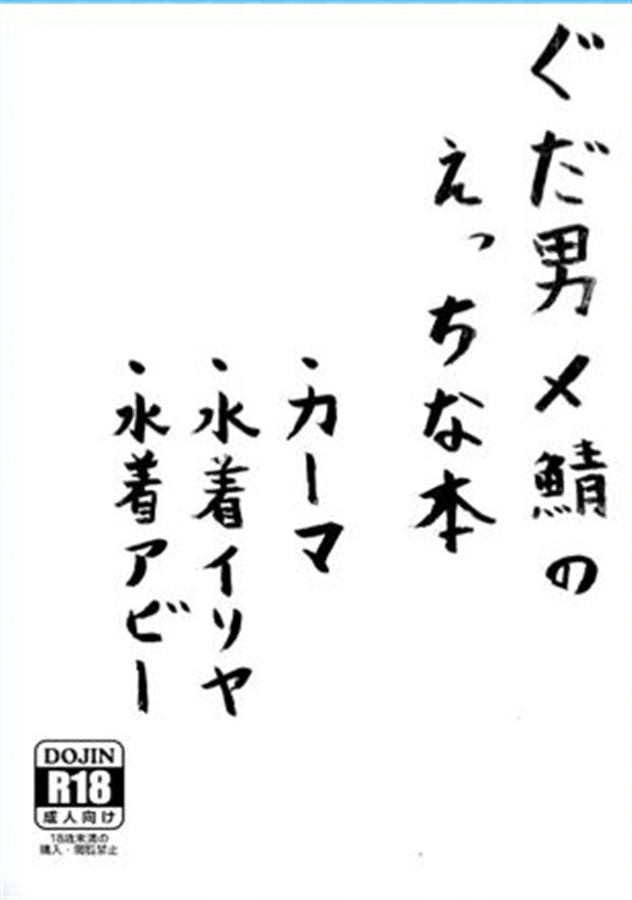 ぐだ男メ鯖の
えっちな本
・カーマ
・水着イリヤ
・水着アビー
DOJIN
R18
成人向け
18歳未満の
購入・閲覧禁止